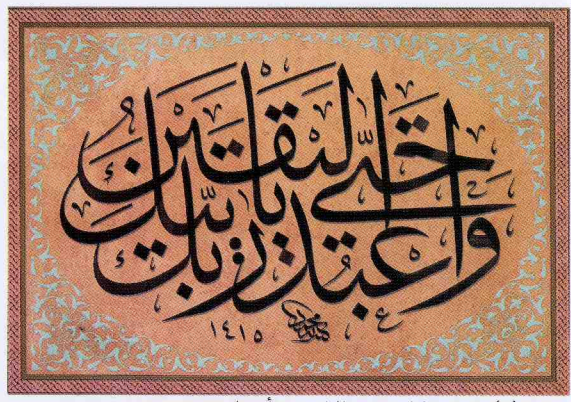 وَاعْبُدْ رَبَّكَ حَتَّى يَأْتِيَكَ الْيَقِينُ
١٤١٥